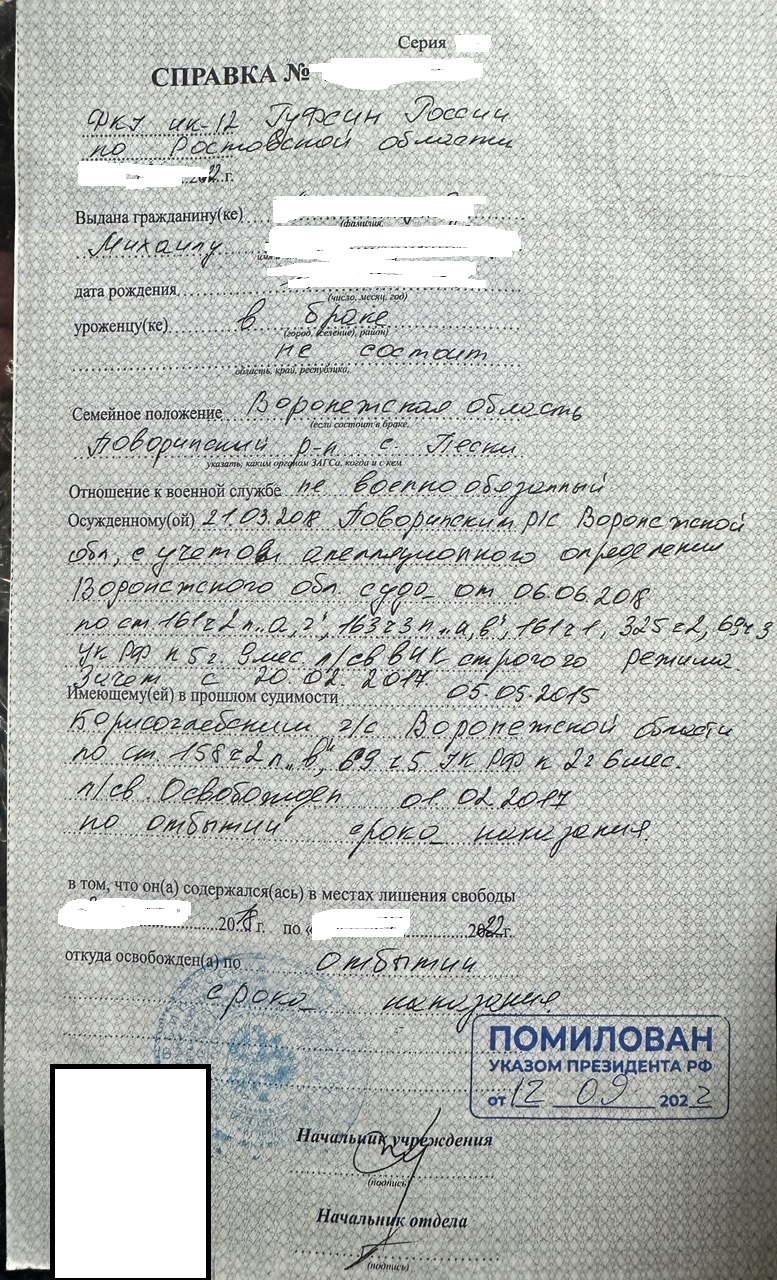 Серия
СПРАВКА №
ФКУ ик-12 ГУФСИН России
по Ростовской области
2022 г.
Выдана гражданину(ке)
(фамилия,
Михаилу
дата рождения
(число, месяц, год)
уроженцу(ке) в браке
(город, селение), район)
не состоит
область, край, республика,
Семейное положение Воронежская область
(если состоит в браке,
Поворинский р-н с Пески
указать, каким органом ЗАГСа, когда и с кем
Отношение к военной службе не военнообязанный
Осужденному(ой) 21.03.2018 Поворинским р/с Воронежской
обл, с учетом апелляционного определения
Воронежского обл. суда от 06.06.2018
по ст 161 ч 2 п „а, г", 163 ч 3 п „а, в", 161 ч 1, 325 ч 2, 69 ч 3
УК РФ к 5 г 9 мес л/св в ИК строгого режима.
Зачет с 20.02.2017.
Имеющему(ей) в прошлом судимости 05.05.2015
Борисоглебским г/с Воронежской области
по ст. 158 ч 2 п „в", 69 ч 5 УК РФ к 2 г 6 мес.
л/св. Освобожден 01.02.2017
по отбытии срока наказания.
в том, что он(а) содержался(ась) в местах лишения свободы
2018 г. по « 2022 г.
откуда освобожден(а) по отбытии
срока наказания.
ПОМИЛОВАН
УКАЗОМ ПРЕЗИДЕНТА РФ
от 12 09 2022
Начальник учреждения
(подпись)
Начальник отдела
(подпись)